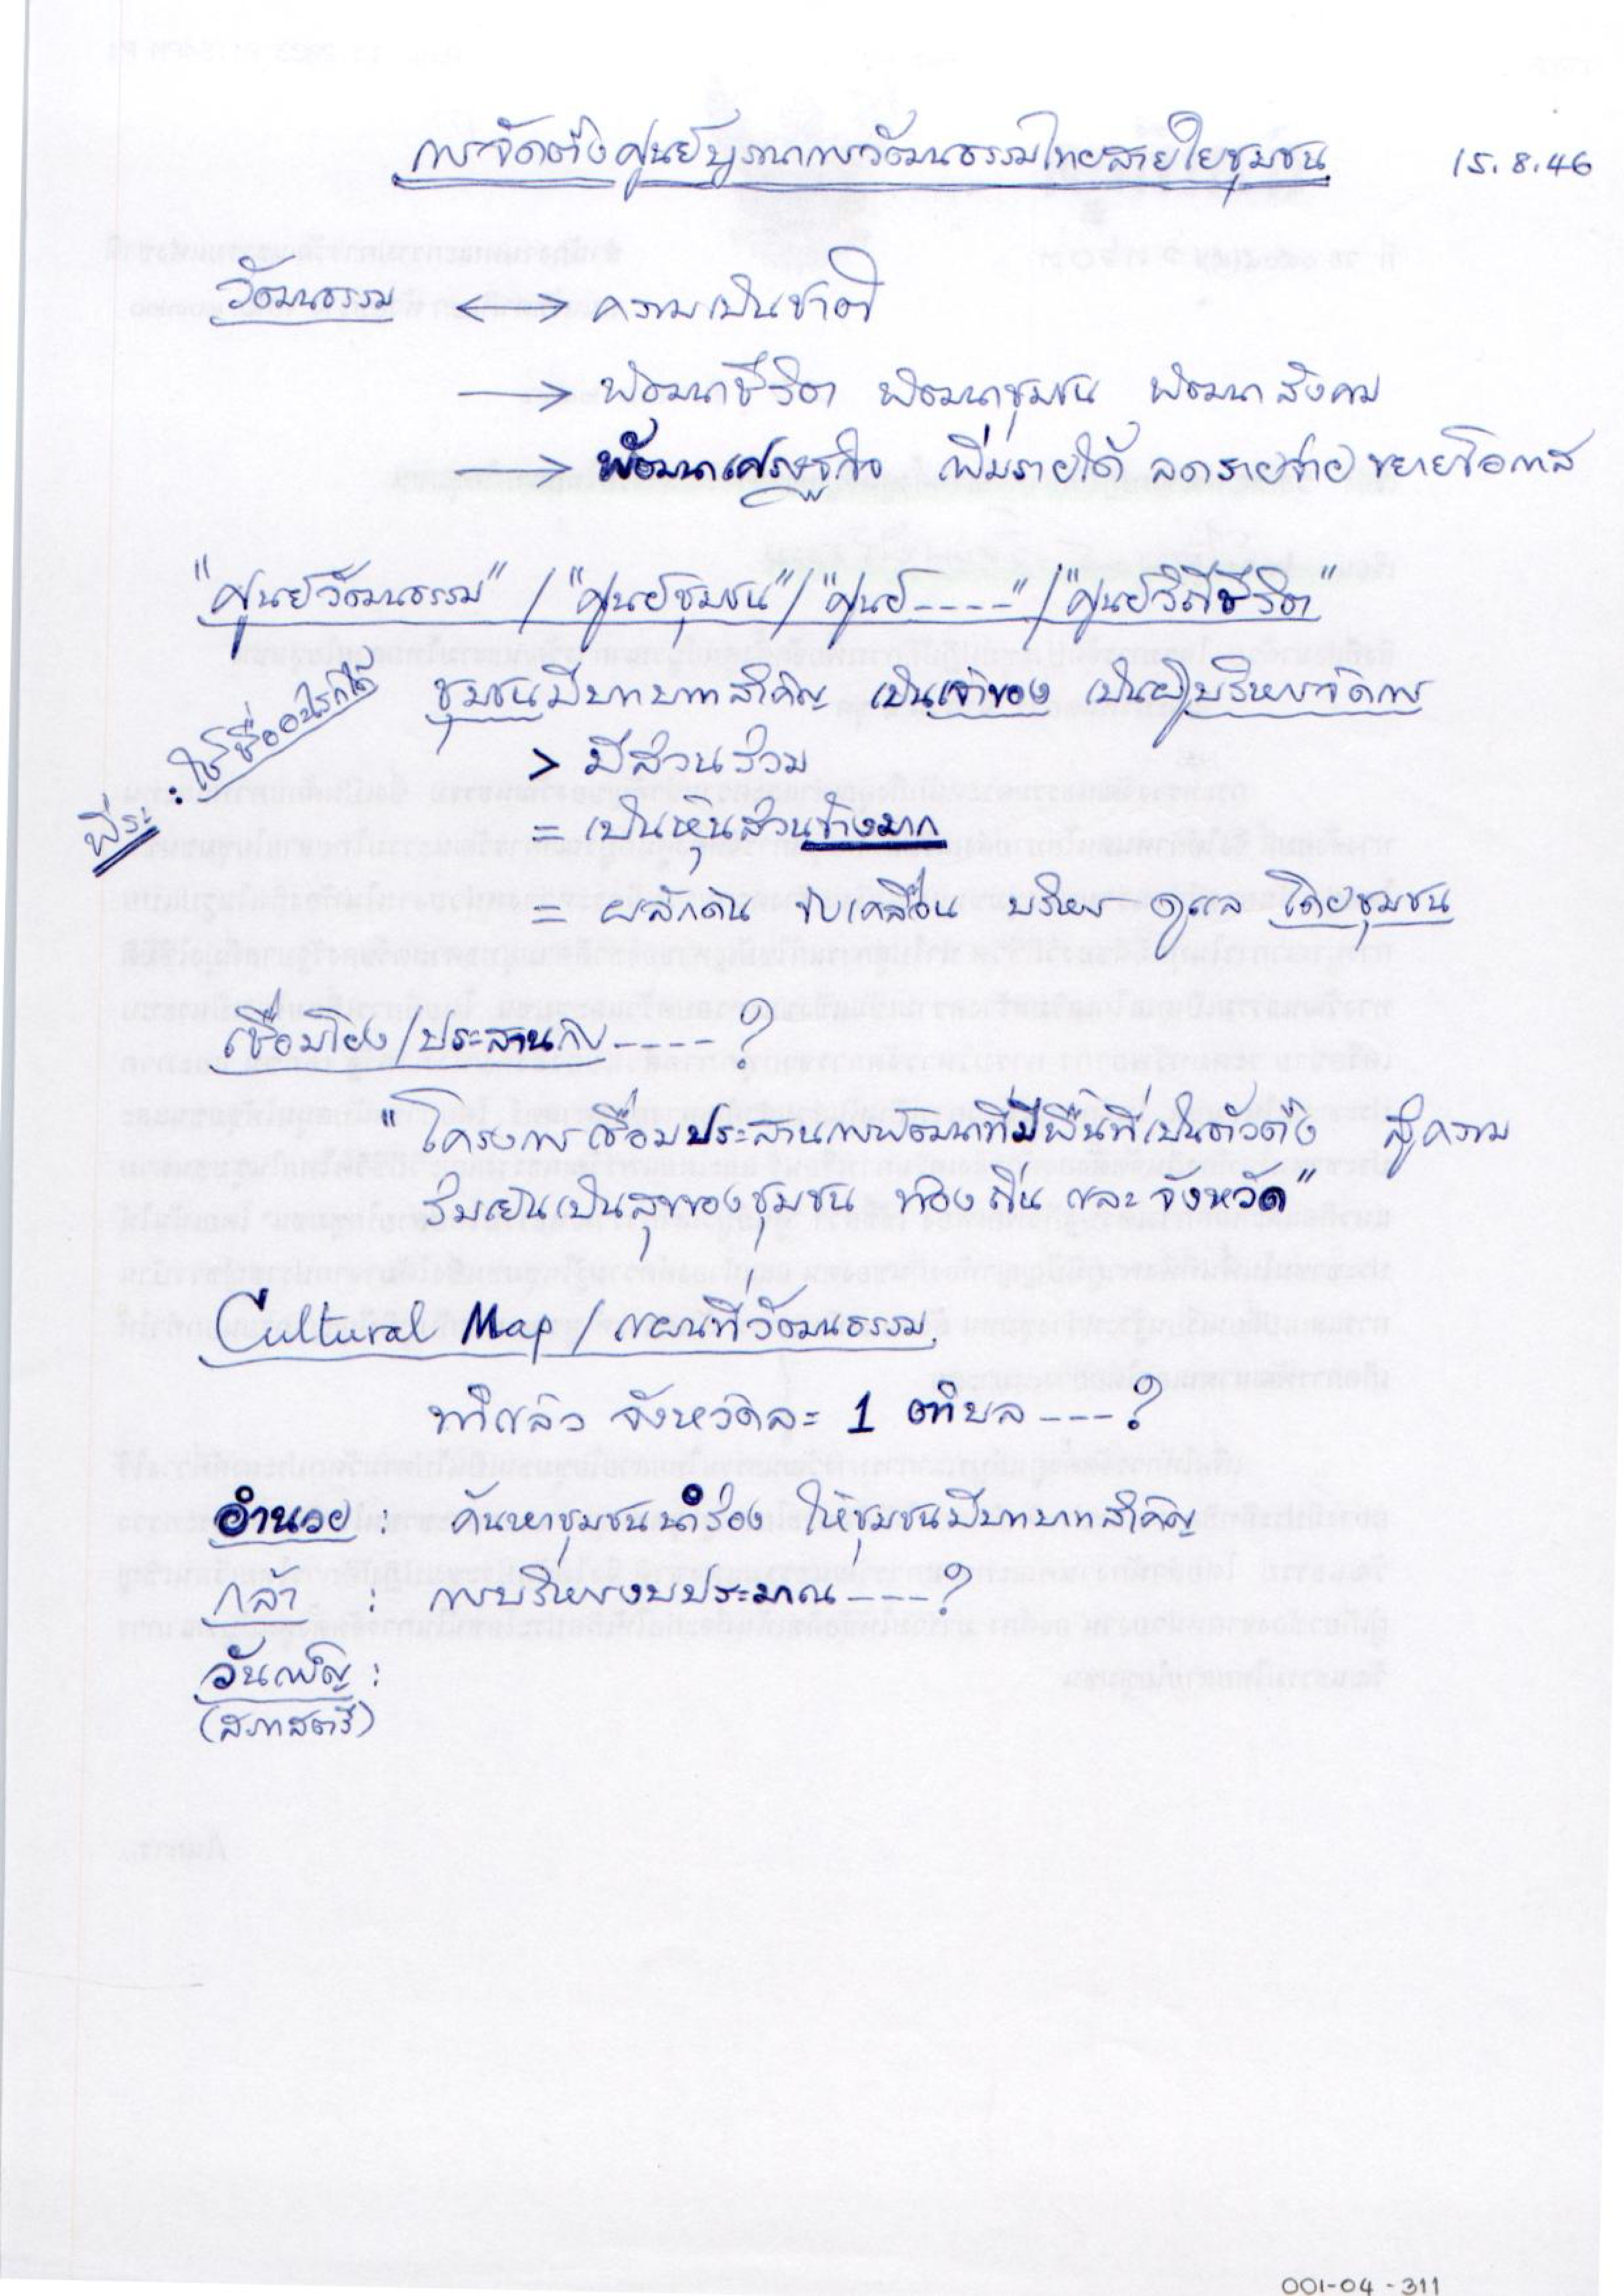 การจัดตั้งศูนย์บูรณาการวัฒนธรรมไทยสายใยชุมชน 15.8.46
วัฒนธรรม <-> ความเป็นชาติ
-> พัฒนาชีวิต พัฒนาชุมชน พัฒนาสังคม
-> พัฒนาเศรษฐกิจ เพิ่มรายได้ ลดรายจ่าย ขยายโอกาส
"ศูนย์วัฒนธรรม" / "ศูนย์ชุมชน" / "ศูนย์-----" / "ศูนย์วิถีชีวิต"
พีระ : ใช้ชื่ออะไรก็ได้
ชุมชนมีบทบาทสำคัญ เป็นเจ้าของ เป็นผู้บริหารจัดการ
> มีส่วนร่วม
= เป็นหุ้นส่วนข้างมาก
= ผลักดัน ขับเคลื่อน บริหาร ดูแล โดยชุมชน
เชื่อมโยง/ประสานกับ-----?
"โครงการเชื่อมประสานการพัฒนาที่มีพื้นที่เป็นตัวตั้ง สู่ความ
ร่มเย็นเป็นสุขของชุมชน ท้องถิ่น และจังหวัด"
Cultural Map / แผนที่วัฒนธรรม
ทำแล้ว จังหวัดละ 1 ตำบล ---?
อำนวย : ค้นหาชุมชนนำร่อง ให้ชุมชนมีบทบาทสำคัญ
กล้า : การบริหารงบประมาณ ---?
วันเพ็ญ :
(สภาสตรี)
001-04-311